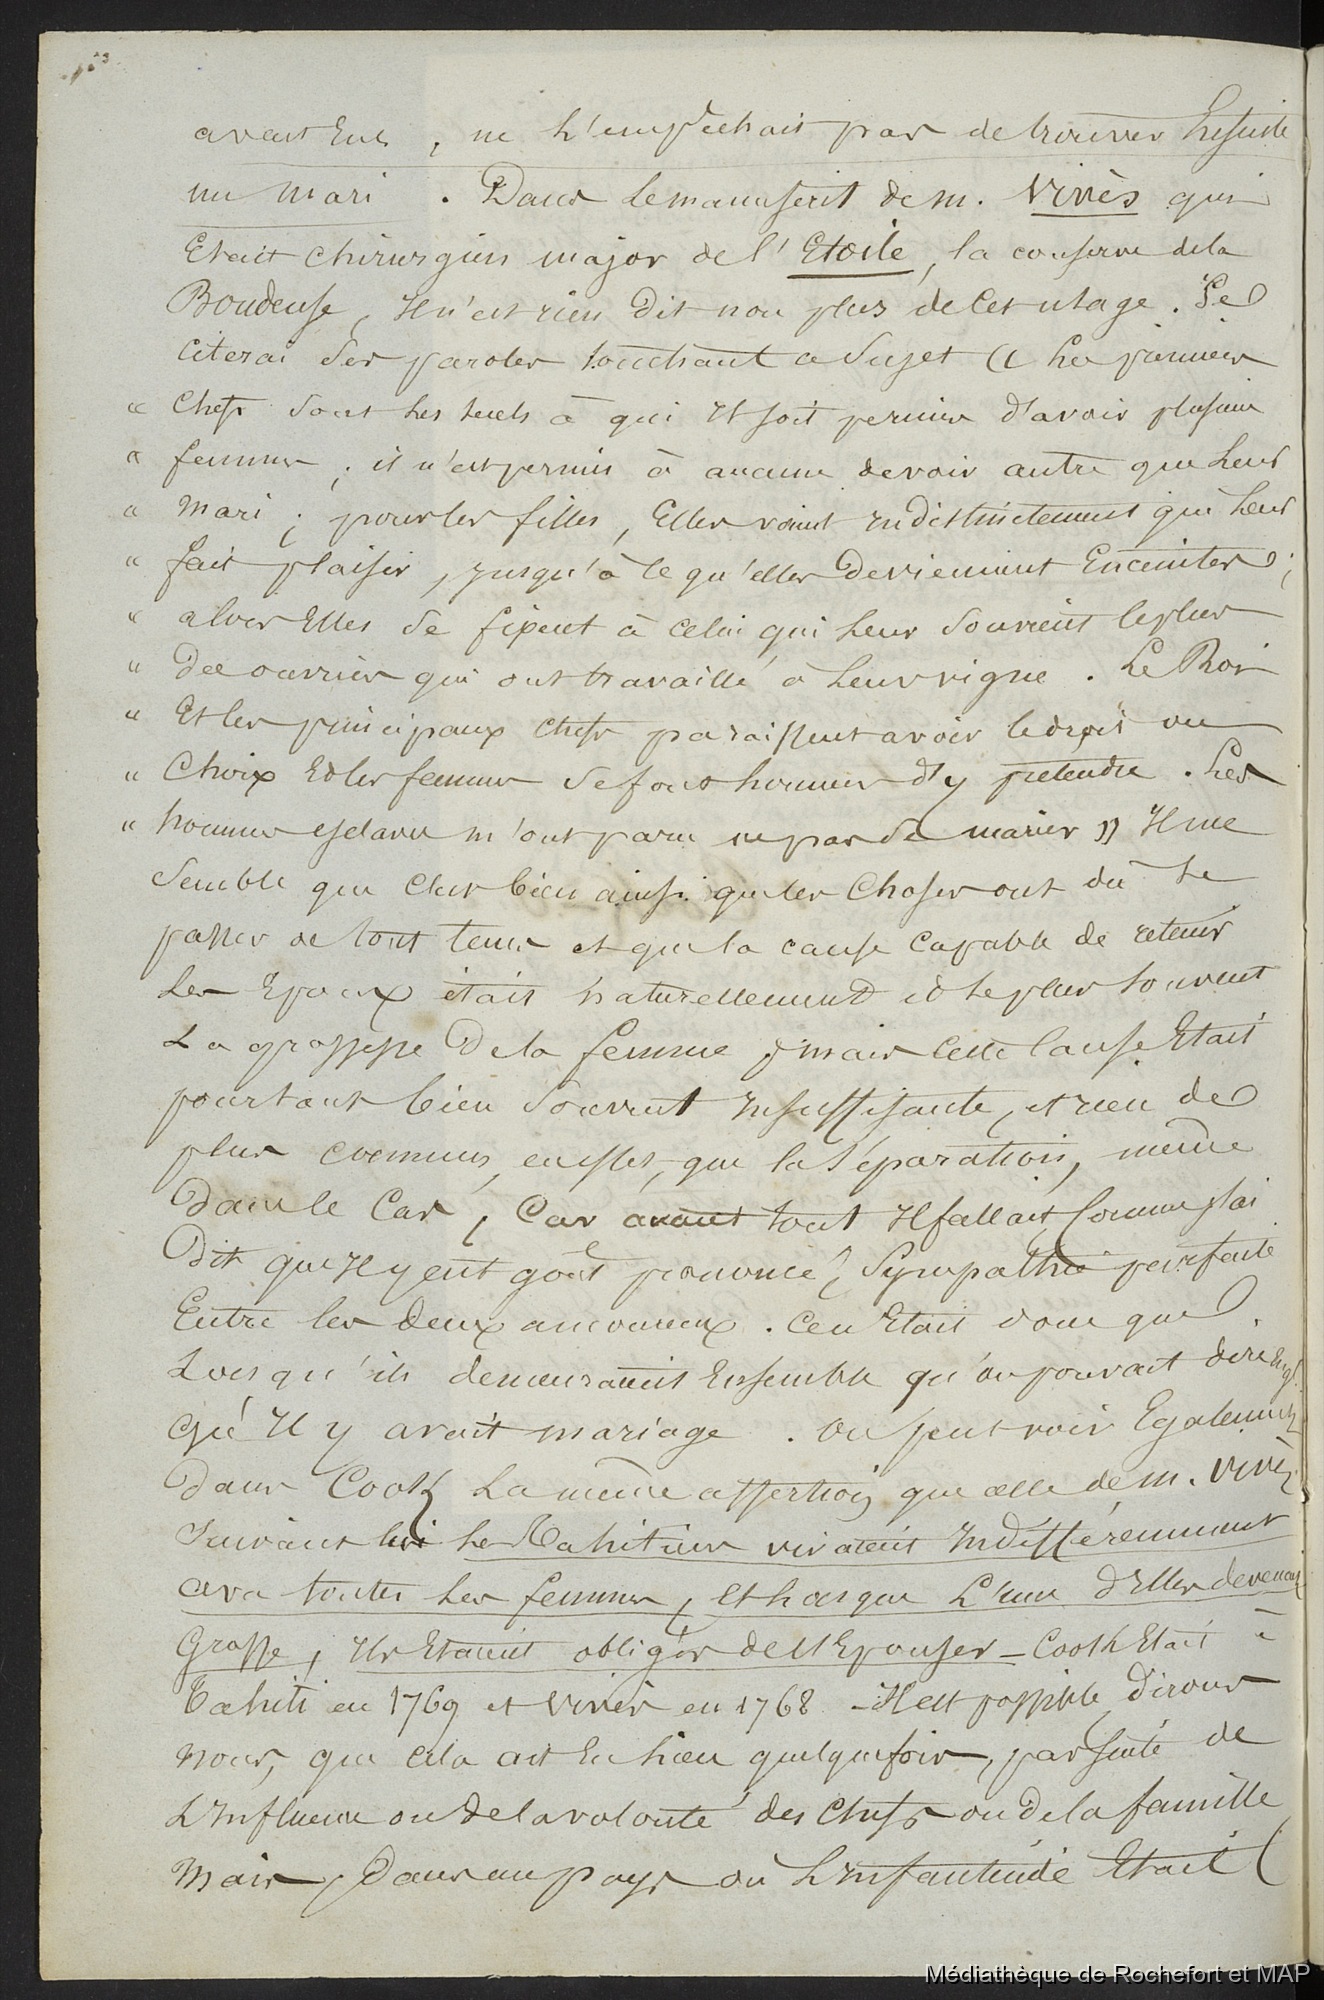 avait eus, ne l'empêchait pas de trouver ensuite
un mari . Dans le manuscrit de m. Vivès qui
Etait chirurgien major de l'Etoile, la conserve de la
Boudeuse, Il n'est rien dit non plus de cet usage. Je
citerai ses paroles touchant ce sujet « Les premiers
« chefs sont les seuls à qui Il soit permis d'avoir plusieurs
« femmes ; il n'est permis à aucune de voir autre que leur
« Mari ; pour les filles, Elles voient Indistinctement qui leur
« fait plaisir, jusqu'à ce qu'elles deviennent Enceintes ;
« alors Elles se fixent à celui qui leur souvient le plus
« Des ouvriers qui ont travaillé à leur vigne. Le Roi
« Et les principaux chefs paraissent avoir le droit au
« Choix Et les femmes se font honneur d'y prétendre. Les
« hommes esclaves m'ont paru ne pas se marier » Il me
Semble que c'est bien ainsi que les choses ont dû se
passer de tout tems et que la cause capable de retenir
Les Epoux était naturellement et le plus souvent
La grossesse De la femme ; mais cette cause Etait
pourtant bien souvent Insuffisante, et rien de
plus commun, en effet, que la séparation, même
Dans le Cas, Car avant tout Il fallait, comme j'ai
Dit que Il y eut goût prononcé, Sympathie parfaite
Entre les deux amoureux. Ce n'Etait donc que
Lorsqu'ils demeuraient Ensemble qu'on pouvait dire
qu'Il y avait mariage . On peut voir Egalement
Dans Cook La même assertion que celle de m. Vivès
Suivant lui les Tahitiens vivaient Indifféremment
avec toutes les femmes, et lorsque L'une d'Elles devenait
Grosse, Ils Etaient obligés de l'Epouser — Cook Etait à
Tahiti en 1769 et Vivès en 1768 — Il est possible, disons
nous, que cela ait Eu lieu quelquefois, par suite de
L'Influence ou de la volonté des Chefs ou De la famille
Mais, Dans un pays où L'Infanticide Etait
Médiathèque de Rochefort et MAP